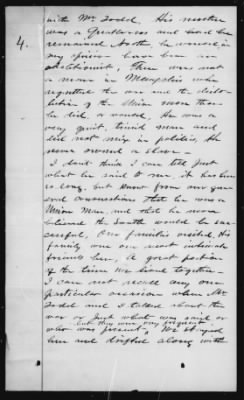 4.
with Mr. Todd. His mother
was a Quakeress and had he
remained North he would in
my opinion have been an
abolitionist, There was not
a man in Memphis who
regretted the war and the disso-
lution of the Union more than
he did, a would, He was a
very quiet, timid man and
did not mix in politics, He
never owned a slave -
I don't think I can tell just
what he said to me, it has been
so long, but know from our gen-
eral conversations that he was a
Union Man, and that he never
believed the South would be suc-
cessful, Our families visited, His
family were our most intimate
friends here, A great portion
of the time we lived together -
I can not recall any one
particular occasion when Mr
Todd and I talked about the
war or just what was said or
but they were very frequent,
who was present, We stayed
here and drifted along with